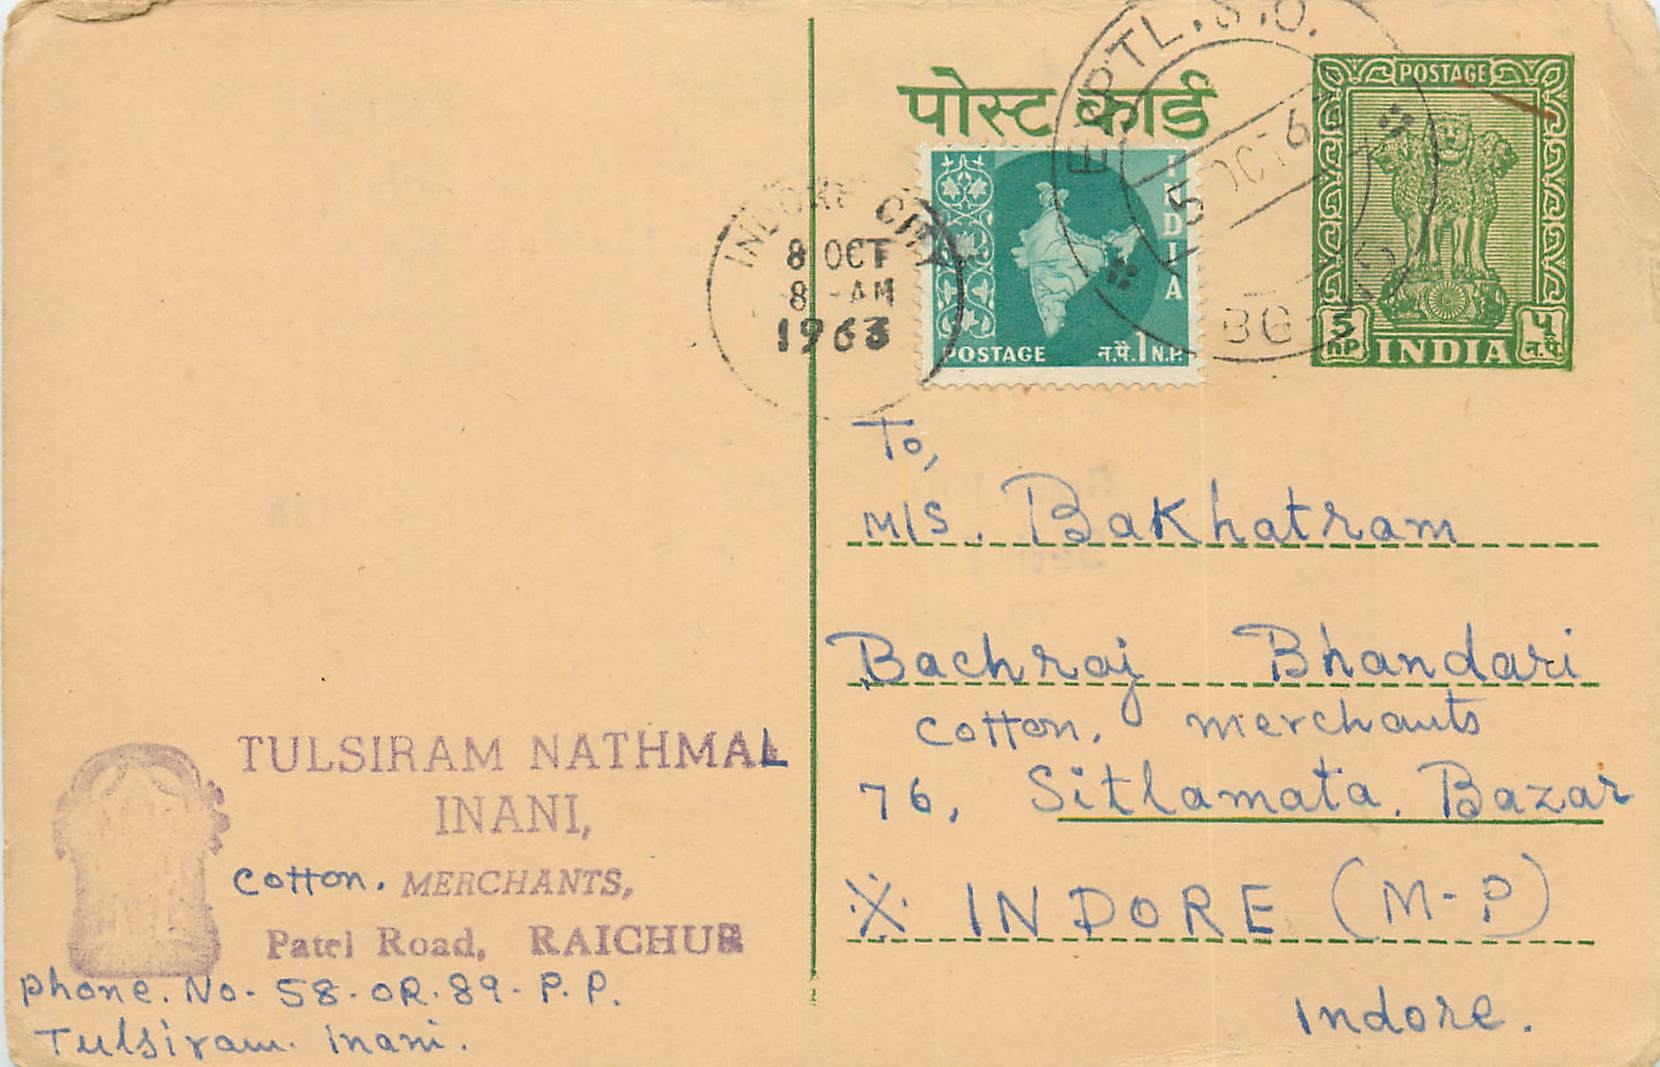 पोस्ट कार्ड
POSTAGE
5 nP INDIA ५ न.पै.
INDIA
POSTAGE न.पै.1 N.P.
EXPTL. S.O.
5 OCT 6
INDORE CITY
8 OCT
8 -AM
1963
To,
M/S. Bakhatram
Bachraj Bhandari
Cotton, merchants
76, Sitlamata, Bazar
INDORE (M-P)
Indore.
TULSIRAM NATHMAL
INANI,
Cotton. MERCHANTS,
Patel Road, RAICHUR
Phone. No- 58-OR-89-P.P.
Tulsiram. Inani.